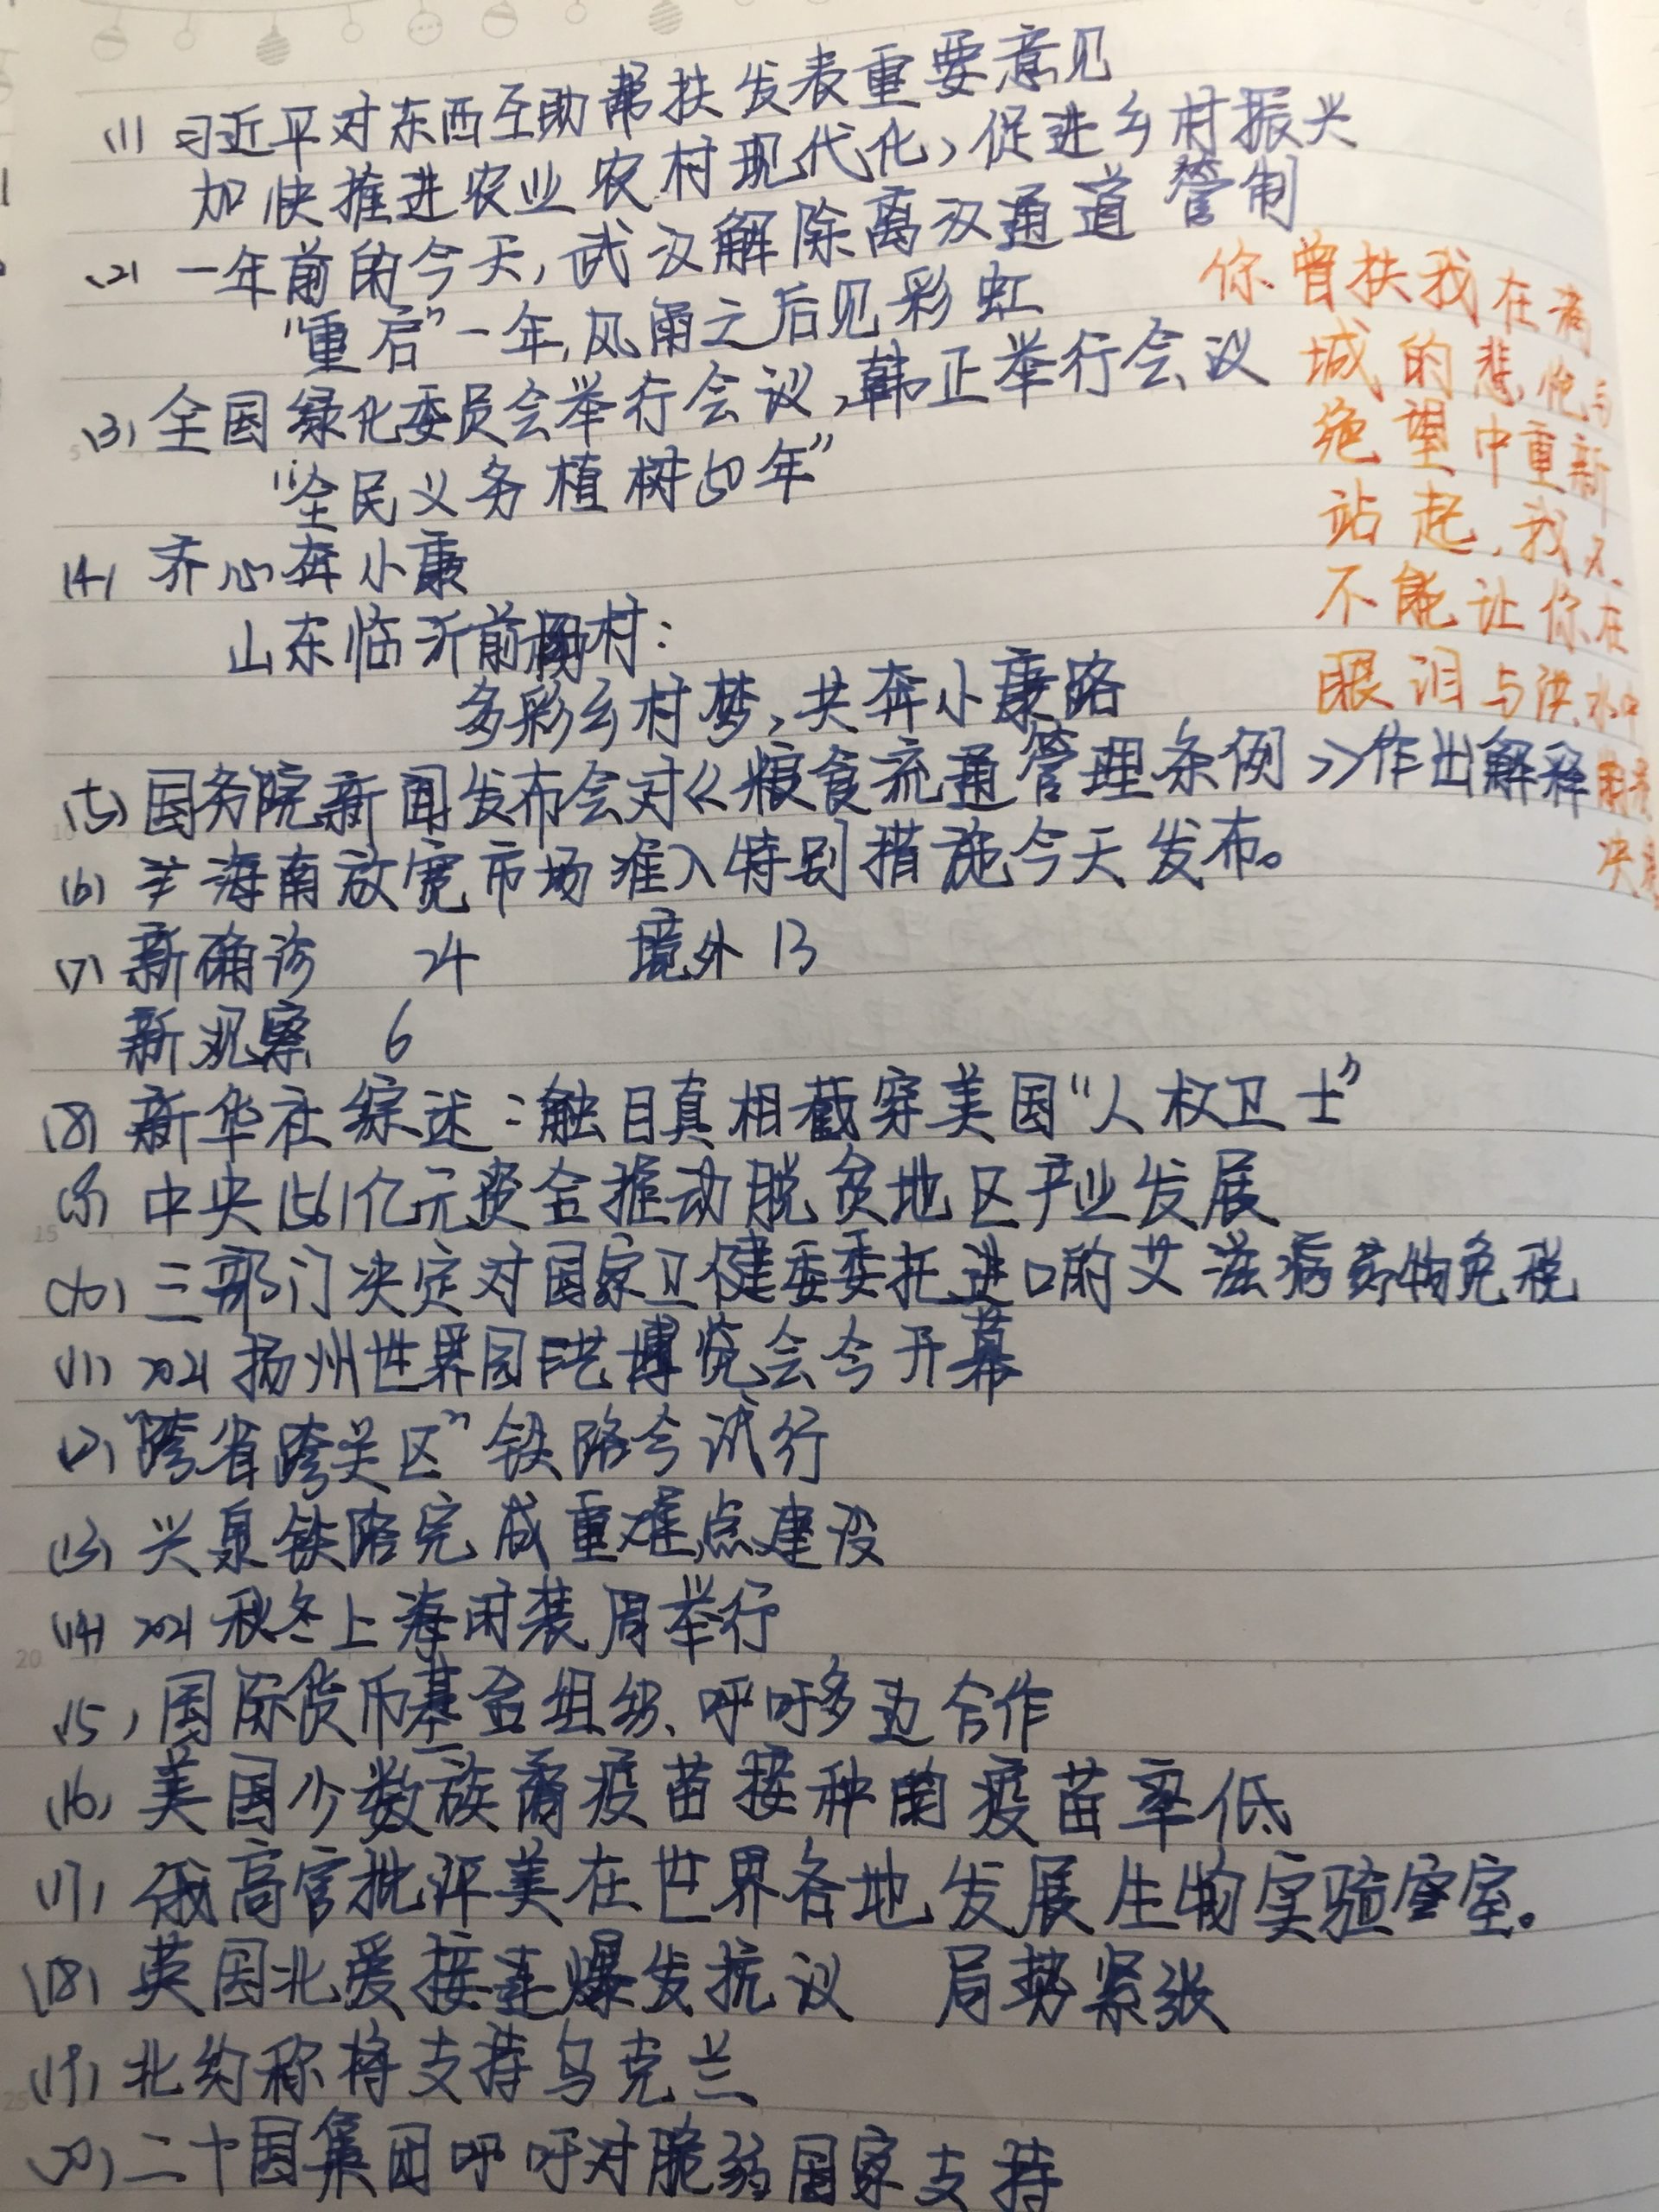 (1) 习近平对东西互助帮扶发表重要意见
加快推进农业农村现代化,促进乡村振兴
(2) 一年前的今天,武汉解除离汉通道管制
“重启”一年,风雨之后见彩虹
(3) 全国绿化委员会举行会议,韩正举行会议
“全民义务植树50年”
(4) 齐心奔小康
山东临沂前村:
多彩乡村梦,共奔小康路
(5) 国务院新闻发布会对《粮食流通管理条例》作出解释
(6) 海南放宽市场准入特别措施今天发布。
(7) 新确诊 24 境外 13
新观察 6
(8) 新华社综述:触目真相戳穿美国“人权卫士”
(9) 中央1561亿元资金推动脱贫地区产业发展
(10) 三部门决定对国家卫健委委托进口的艾滋病药物免税
(11) 2021扬州世界园艺博览会今开幕
(12) “跨省跨关区”铁路今试行
(13) 兴泉铁路完成重难点建设
(14) 2021秋冬上海时装周举行
(15) 国际货币基金组织、呼吁多边合作
(16) 美国少数族裔疫苗接种的疫苗率低
(17) 俄高官批评美在世界各地发展生物实验室。
(18) 英国北爱接连爆发抗议 局势紧张
(19) 北约称将支持乌克兰
(20) 二十国集团呼吁对脆弱国家支持
你曾扶我在满
城的悲怆与
绝望中重新
站起,我又
不能让你在
眼泪与洪水中
决